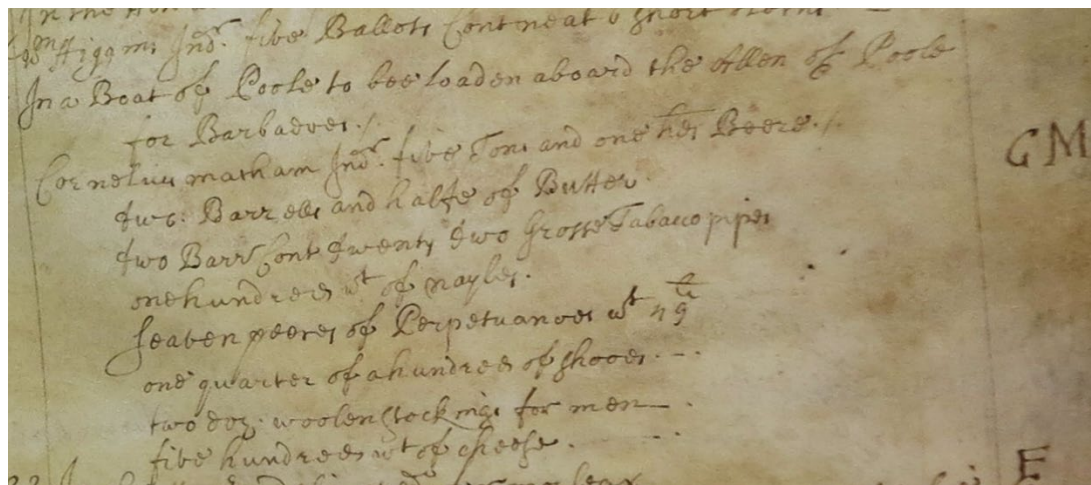 In the
Higgins Ind. five Ballots Cont neat 6 short
In a Boat of Poole to bee loaden aboard the Allen of Poole
for Barbadoes ./
Cornelius Markam Indr. five Tons and one hds Beere ./
two: Barrells and halfe of Butter.
two Barrs Cont twenty two Grosse Tabacco pipes
one hundred wt of nayles.
Seaven peeces of Perpetuanoes wt
one quarter of a hundred of shooes. - -
two doz. woolen Stockings for men - .
five hundred wt of cheese.
GM
F